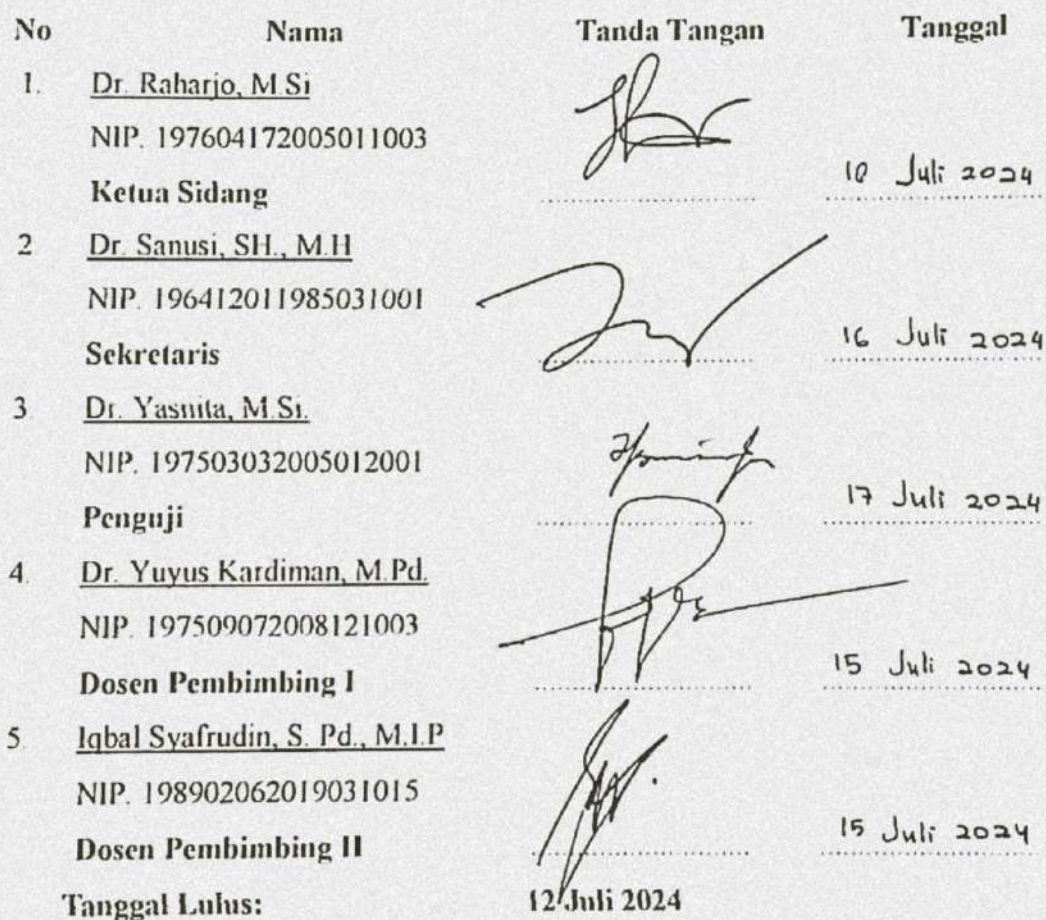 No Nama Tanda Tangan Tanggal
1. Dr. Raharjo, M.Si
NIP. 197604172005011003
Ketua Sidang Juli 2024
2 Dr. Sanusi, SH., M.H
NIP. 196412011985031001
Sekretaris 16 Juli 2024
3 Dr. Yasnita, M.Si.
NIP. 197503032005012001
Penguji 17 Juli 2024
4. Dr. Yuyus Kardiman, M.Pd.
NIP. 197509072008121003
Dosen Pembimbing I 15 Juli 2024
5 Iqbal Syafrudin, S. Pd., M.I.P
NIP. 198902062019031015
Dosen Pembimbing II 15 Juli 2024
Tanggal Lulus: 12 Juli 2024